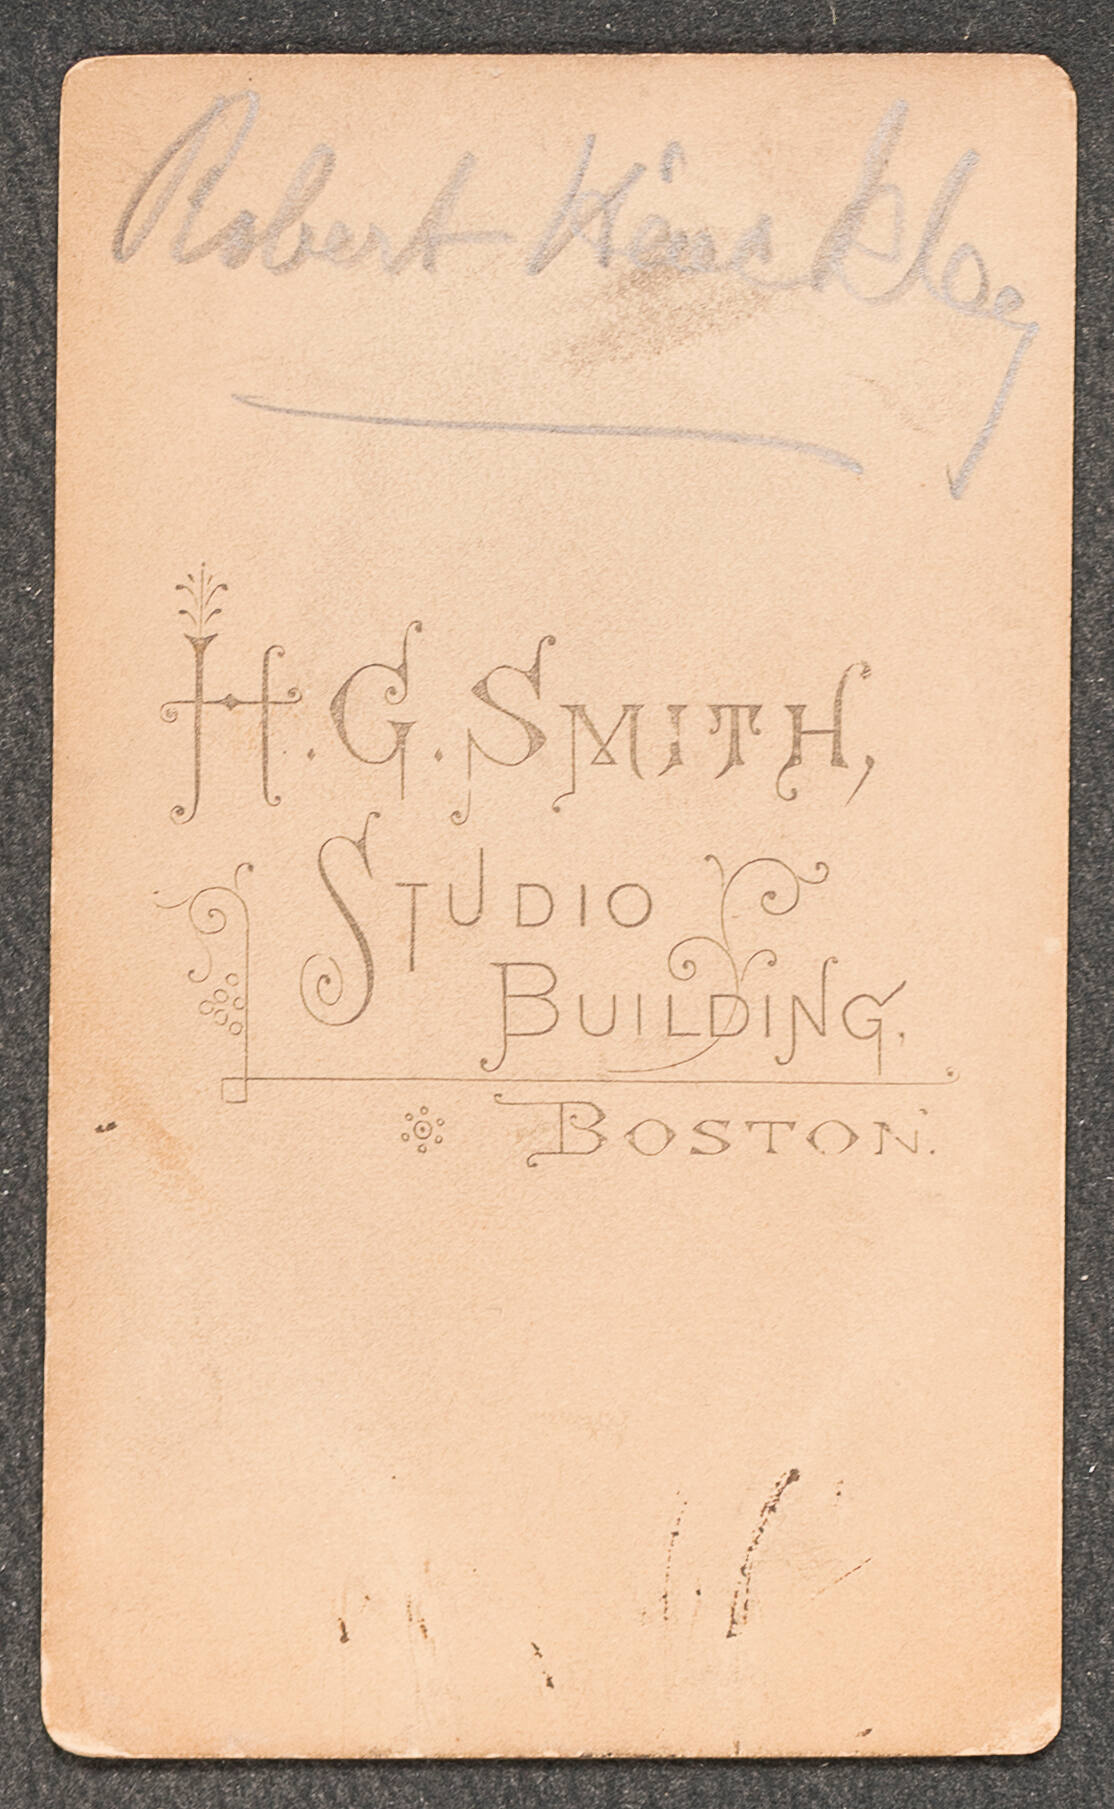 Robert Hinckley
H. G. SMITH,
STUDIO
BUILDING.
BOSTON.